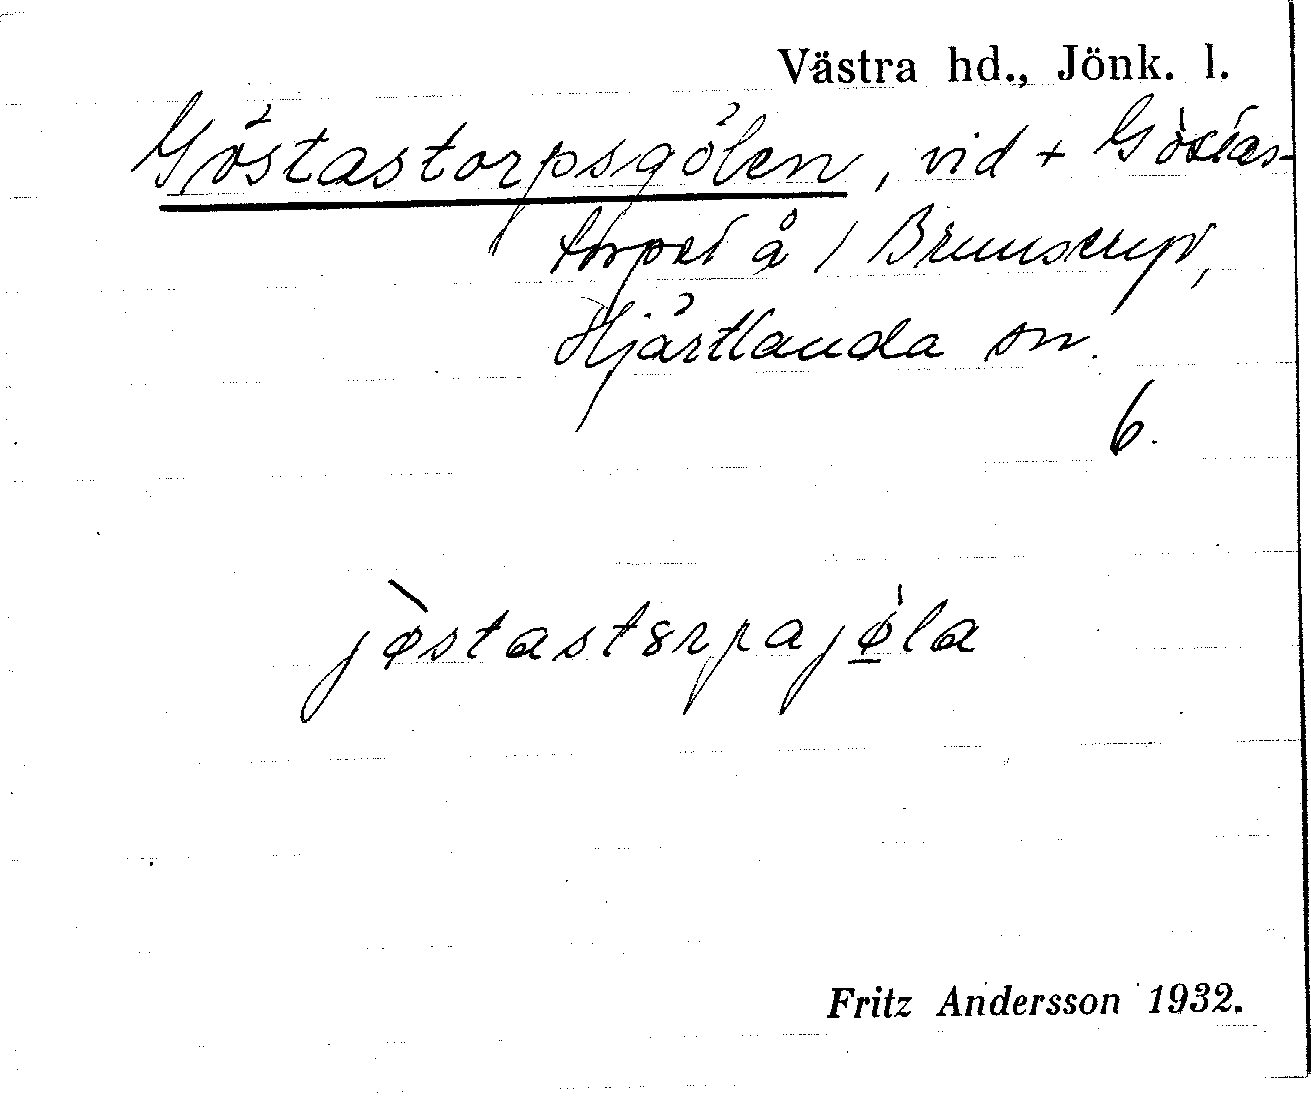 Västra hd., Jönk. l.
Göstastorpsgölen, vid + Göstas-
torpet å / Brunserup,
Hjärtlanda sn.
6.
jòstastȣrpajø̀la
Fritz Andersson 1932.